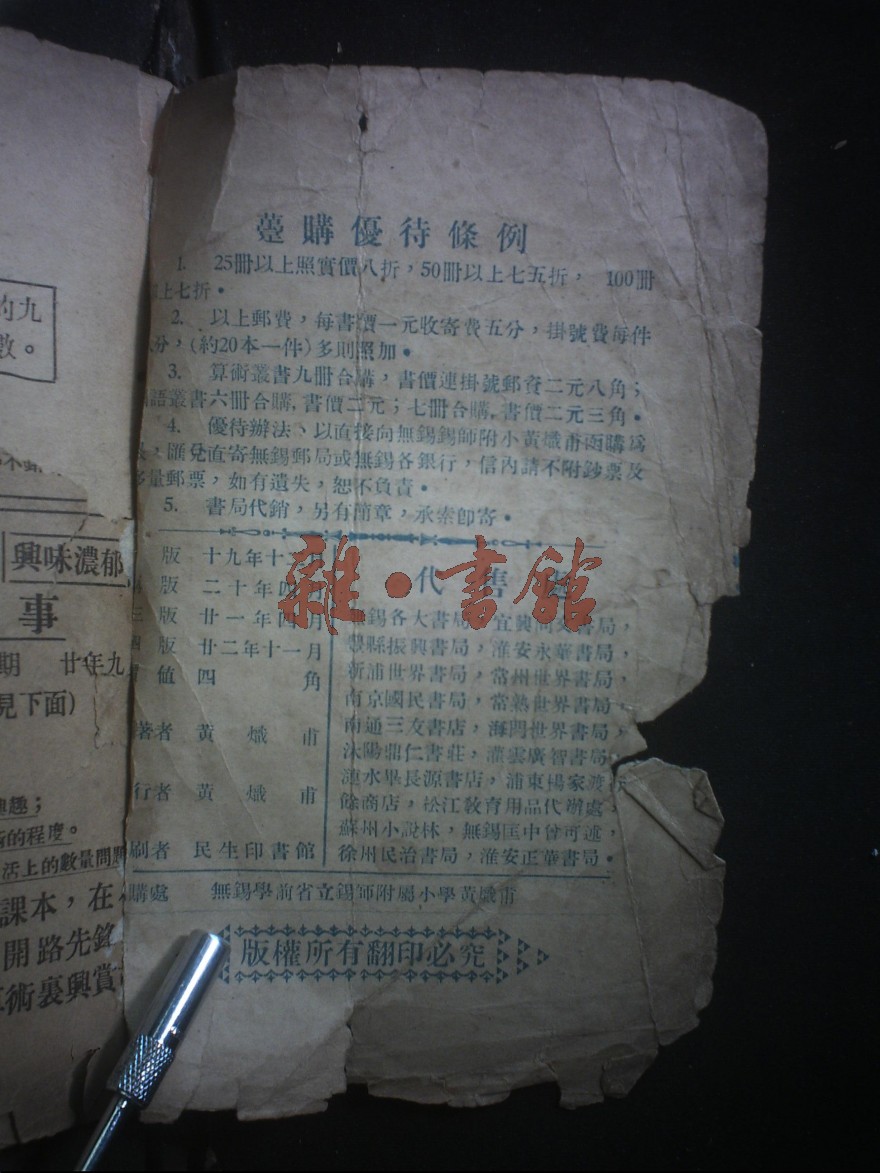 躉購優待條例
1. 25冊以上照實價八折，50冊以上七五折， 100冊
上七折。
2. 以上郵費，每書價一元收寄費五分，掛號費每件
分，(約20本一件)多則照加。
3. 算術叢書九冊合購，書價連掛號郵資二元八角；
語叢書六冊合購,書價二元；七冊合購,書價二元三角。
4. 優待辦法、以直接向無錫錫師附小黃熾甫函購爲
，匯兌直寄無錫郵局或無錫各銀行，信內請不附鈔票及
多量郵票，如有遺失，恕不負責。
5. 書局代銷，另有簡章，承索卽寄。
版 十九年十 月
版 二十年四月
三版 廿一年四月
四版 廿二年十一月
實値 四 角
著者 黃熾甫
行者 黃熾甫
刷者 民生印書館
代售處
無錫各大書局，宜興 書局，
縣振興書局，淮安永華書局，
新浦世界書局，常州世界書局，
南京國民書局，常熟世界書局，
南通三友書店，海門世界書局，
沭陽鼎仁書莊，灌雲廣智書局
漣水畢長源書店，浦東楊家渡
餘商店，松江敎育用品代辦處，
蘇州小說林，無錫匡中曾可述，
徐州民治書局，淮安正華書局。
購處 無錫學前省立錫師附屬小學黃熾甫
版權所有翻印必究
雜·書館
的九
數。
興味濃郁
事
期 廿年九
見下面)
趣；
術的程度。
活上的數量問題
課本，在
開路先鋒
術裏興賞